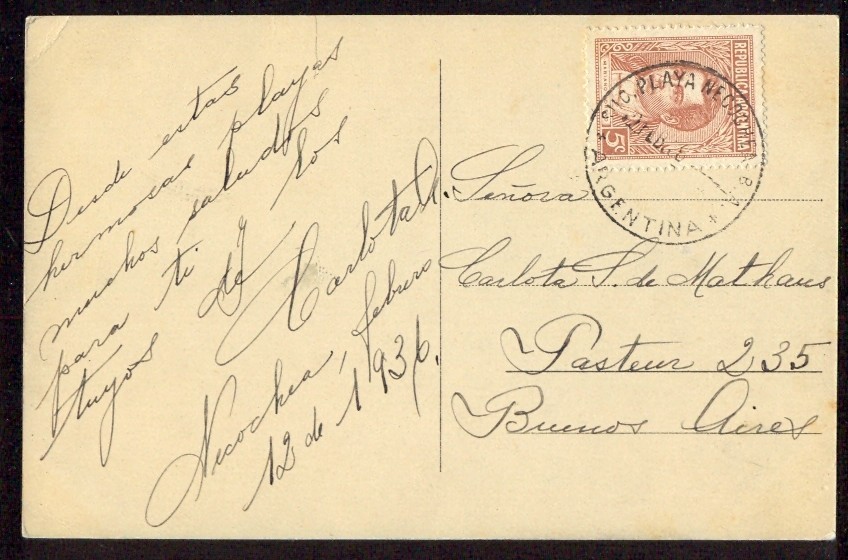 Desde estas
hermosas playas
muchos saludos
para ti y los
tuyos de
Carlota
Necochea, febrero
12 de 1936.
REPUBLICA ARGENTINA
5c
PLAYA NECOCHEA
ARGENTINA
Señora
Carlota S. de Mathaus
Pasteur 235
Buenos Aires